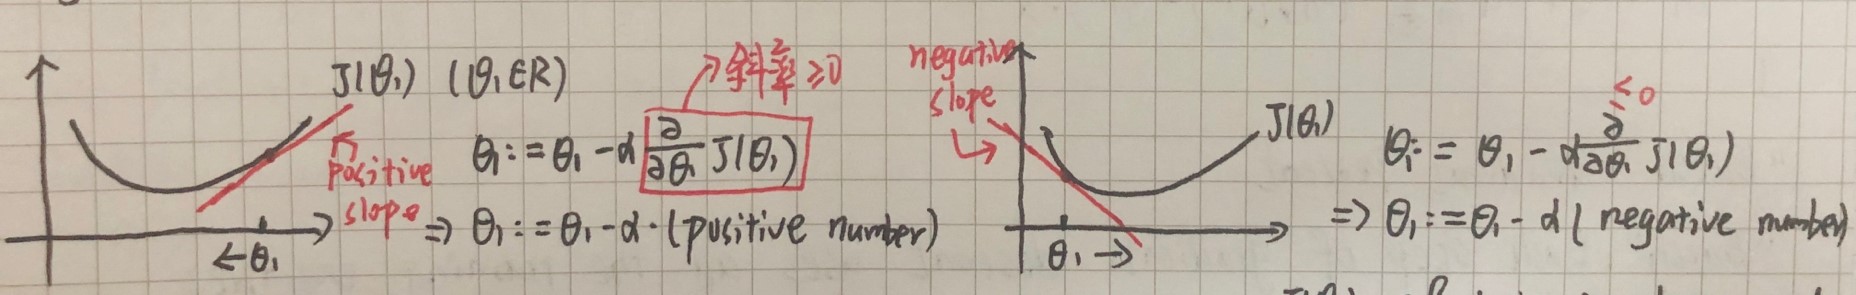 J(θ₁) (θ₁∈R)
斜率≥0
θ₁:=θ₁-α ∂/∂θ₁ J(θ₁)
positive
slope
⇒ θ₁:=θ₁-α·(positive number)
←θ₁
negative
slope
J(θ₁)
≤0
θ₁:= θ₁-α ∂/∂θ₁ J(θ₁)
⇒ θ₁:=θ₁-α( negative number)
θ₁→